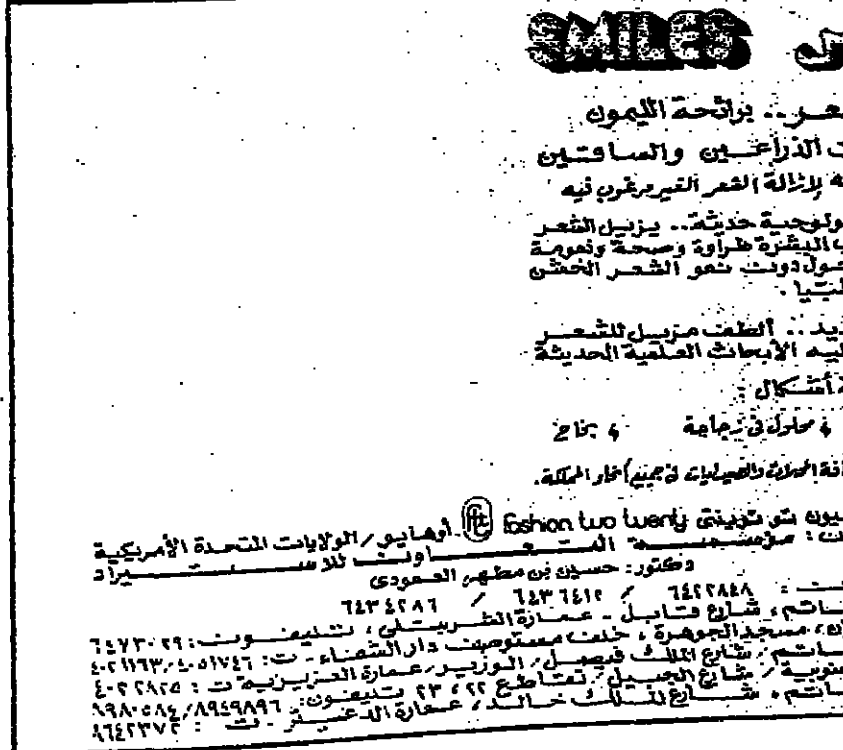 SMILES
برائحة الليمون
الذراعين والساقين
لإزالة الشعر الغير مرغوب فيه
حديثة.. يزيل الشعر
البشرة طراوة وصحة ونعومة
دون نمو الشعر الخشن
.. ألطف مزيل للشعر
الأبحاث العلمية الحديثة
أشكال :
، محلول في زجاجة ، بخاخ
والصيدليات في جميع أنحاء المملكة.
تو توينتي fft fashion two twenty أوهايو / الولايات المتحدة الأمريكية
مؤسسة التعاون للاستيراد
دكتور: حسين بن مطهر العمودي
٦٤٢٢٨٤٨ / ٦٤٣٦٤١٢ / ٦٤٣٤٢٨٦
شارع قابل - عمارة الشربتلي، تليفون: ٦٤٧٣٠٢٩
مسجد الجوهرة، خلف مستوصف دار الشفاء - ت: ٤٠٥١٧٤٦/٤٠٢١١٦٣
شارع الملك فيصل / الوزير / عمارة العزيزية ت : ٤٠٢٢٨٢٥
شارع الجبيل / تقاطع ٢٢، ٢٣ تليفون: ٨٩٤٩٨٩٦/
شارع الملك خالد، عمارة الدعيلج - ت : ٨٦٤٢٣٧٢